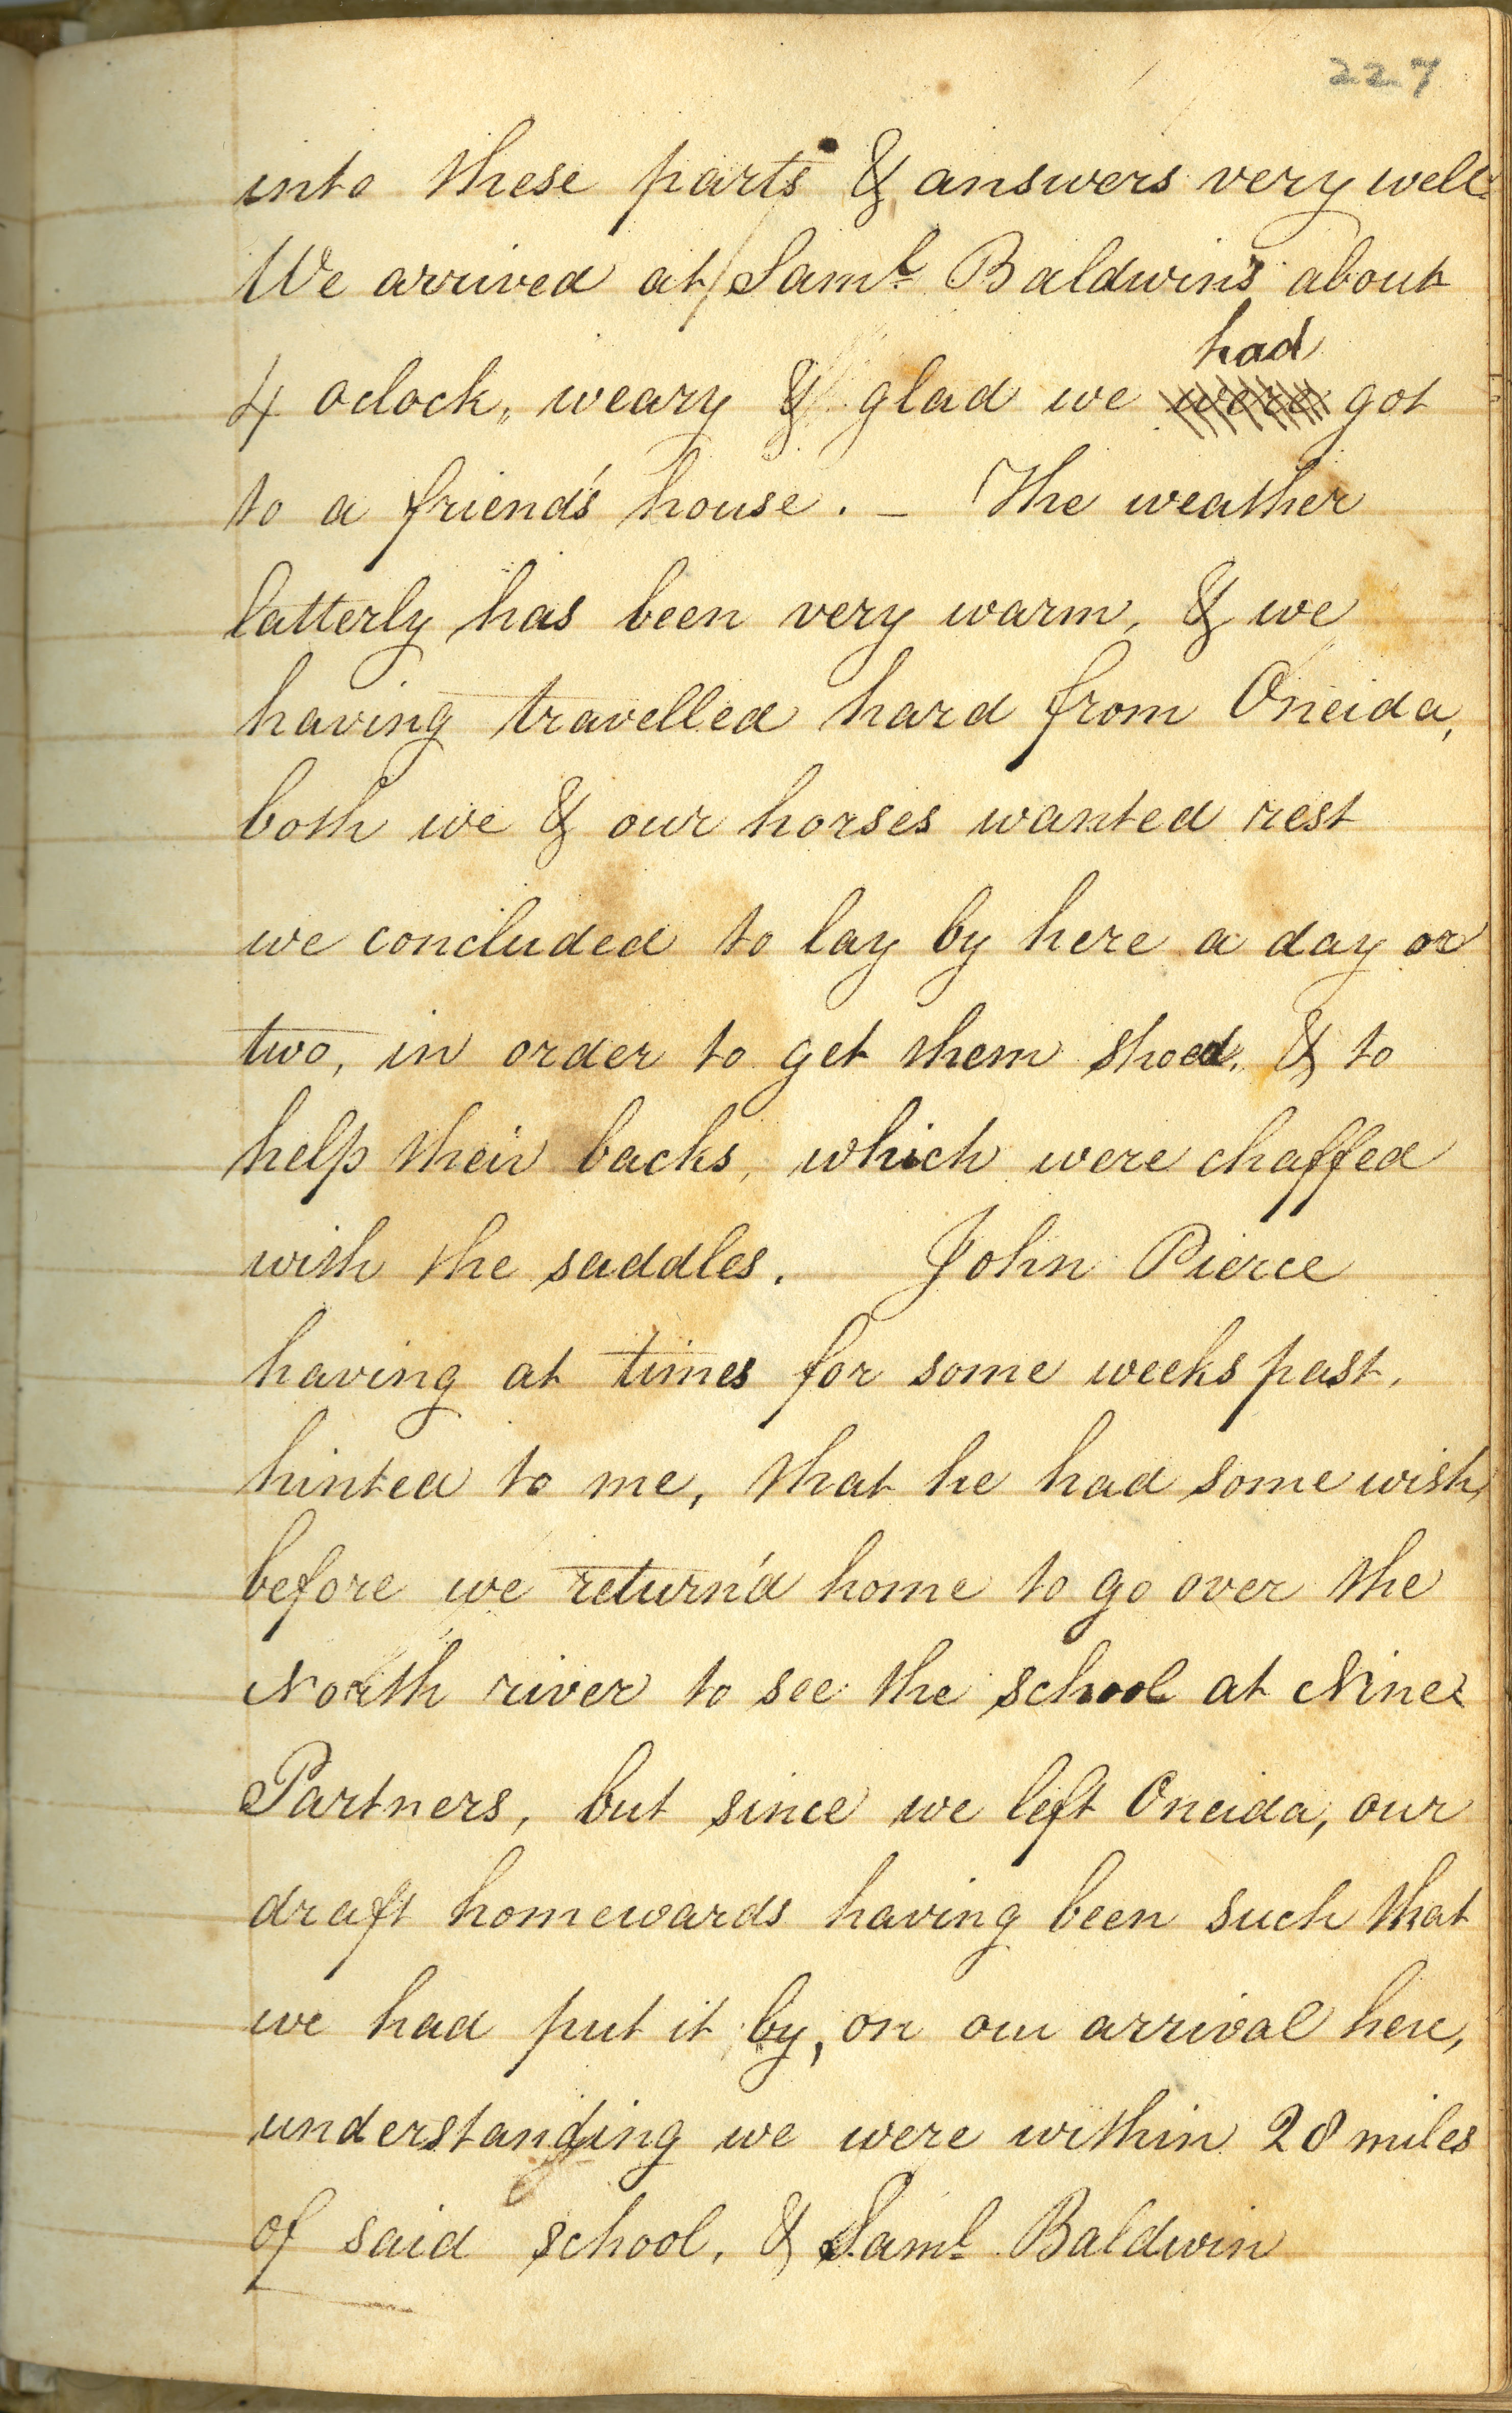 227
into these parts & answers very well.
We arrived at Saml Baldwin's about
had
4 oclock, weary & glad we were got
to a friend's house. _ The weather
latterly has been very warm, & we
having travelled hard from Oneida,
both we & our horses wanted rest
we concluded to lay by here a day or
two, in order to get them shoed, & to
help their backs, which were chaffed
with the saddles. John Pierce
having at times for some weeks past,
hinted to me, that he had some wish,
before we return'd home to go over the
North river to see the school at Nine
Partners, but since we left Oneida, our
draft homewards having been such that
we had put it by, on our arrival here,
understanding we were within 28 miles
of said school, & Saml Baldwin